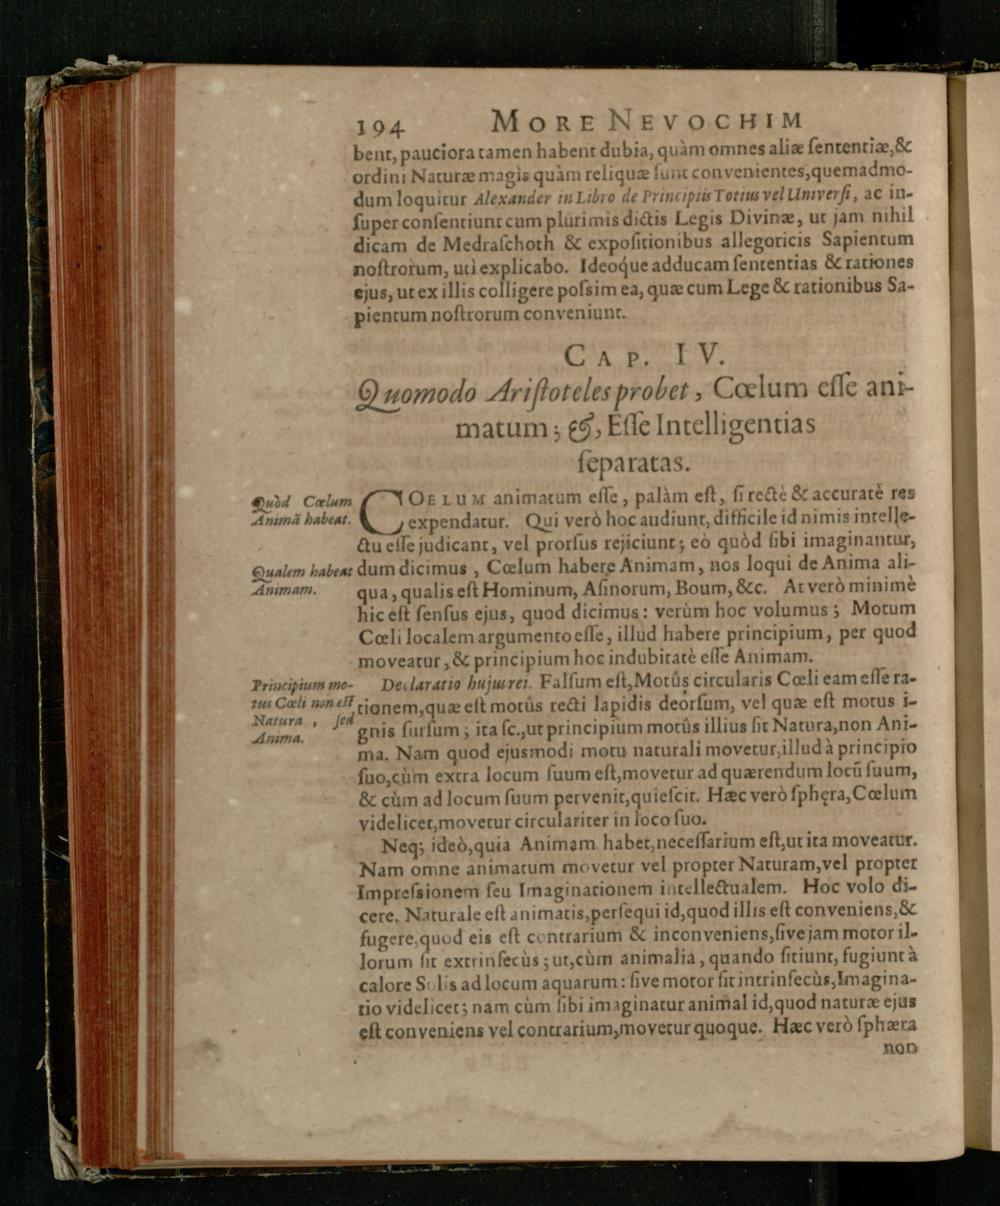 194 MORE NEVOCHIM
bent, pauciora tamen habent dubia, quàm omnes aliæ ſententiæ, &
ordini Naturæ magis quàm reliquæ ſunt convenientes, quemadmo-
dum loquitur Alexander in Libro de Principiis Totius vel Univerſi, ac in-
ſuper conſentiunt cum plurimis dictis Legis Divinæ, ut jam nihil
dicam de Medraſchoth & expoſitionibus allegoricis Sapientum
noſtrorum, uti explicabo. Ideoq́ue adducam ſententias & rationes
ejus, ut ex illis colligere poſsim ea, quæ cum Lege & rationibus Sa-
pientum noſtrorum conveniunt.
CAP. IV.
Quomodo Ariſtoteles probet, Cœlum eſſe ani-
matum; &, Eſſe Intelligentias
ſeparatas.
Quòd Cœlum
Animā habeat.
COELUM animatum eſſe, palàm eſt, ſi rectè & accuratè res
expendatur. Qui verò hoc audiunt, difficile id nimis intelle-
ctu eſſe judicant, vel prorſus rejiciunt; eò quòd ſibi imaginantur,
Qualem habeat
Animam.
dum dicimus, Cœlum habere Animam, nos loqui de Anima ali-
qua, qualis eſt Hominum, Aſinorum, Boum, &c. At verò minimè
hic eſt ſenſus ejus, quod dicimus: verùm hoc volumus; Motum
Cœli localem argumento eſſe, illud habere principium, per quod
moveatur, & principium hoc indubitatè eſſe Animam.
Principium mo-
tus Cœli non eſt
Natura, ſed
Anima.
Declaratio hujus rei. Falſum eſt, Motûs circularis Cœli eam eſſe ra-
tionem, quæ eſt motûs recti lapidis deorſum, vel quæ eſt motus i-
gnis ſurſum; ita ſc., ut principium motûs illius ſit Natura, non Ani-
ma. Nam quod ejusmodi motu naturali movetur, illud à principio
ſuo, cùm extra locum ſuum eſt, movetur ad quærendum locū ſuum,
& cùm ad locum ſuum pervenit, quieſcit. Hæc verò ſphęra, Cœlum
videlicet, movetur circulariter in loco ſuo.
Neq; ideò, quia Animam habet, neceſſarium eſt, ut ita moveatur.
Nam omne animatum movetur vel propter Naturam, vel propter
Impreſsionem ſeu Imaginationem intellectualem. Hoc volo di-
cere. Naturale eſt animatis, perſequi id, quod illis eſt conveniens, &
fugere, quod eis eſt contrarium & inconveniens, ſive jam motor il-
lorum ſit extrinſecùs; ut, cùm animalia, quando ſitiunt, fugiunt à
calore Solis ad locum aquarum: ſive motor ſit intrinſecùs, Imagina-
tio videlicet; nam cùm ſibi imaginatur animal id, quod naturæ ejus
eſt conveniens vel contrarium, movetur quoque. Hæc verò ſphæra
non